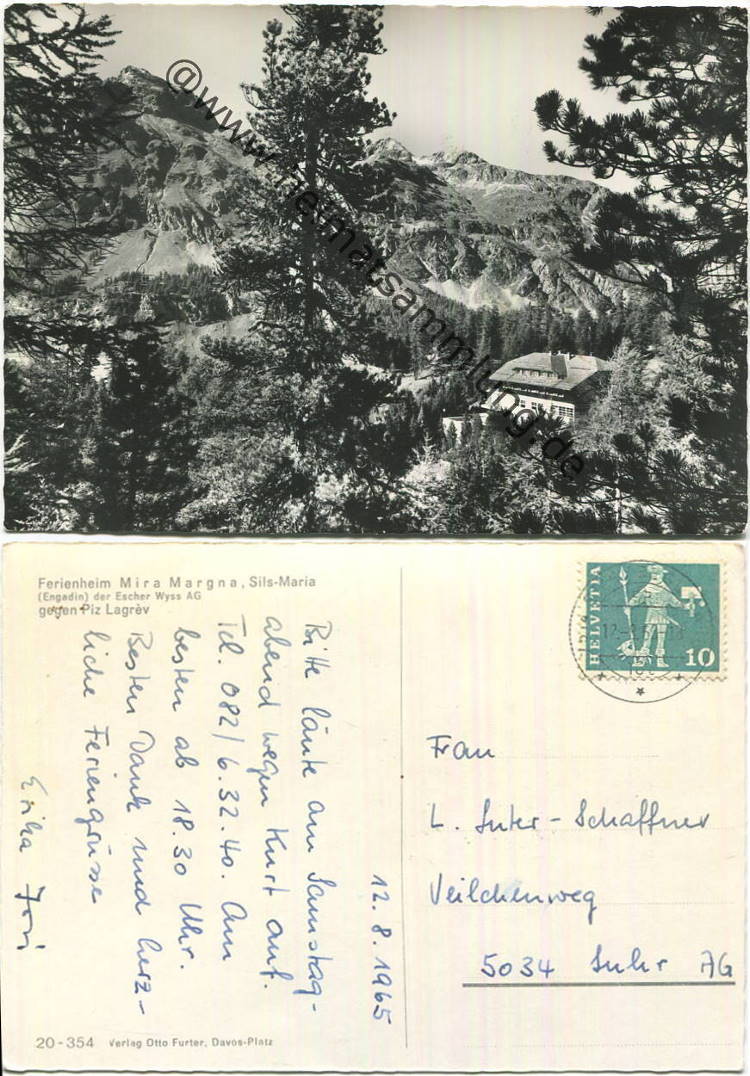 @www.heimatsammlung.de
Ferienheim Mira Margna, Sils-Maria
(Engadin) der Escher Wyss AG
gegen Piz Lagrèv
HELVETIA
10
12.8.1965
Bitte läute am Samstag-
abend wegen Kurt auf.
Tel. 082/6.32.40. Am
besten ab 18.30 Uhr.
Besten Dank und herz-
liche Feriengrüsse
Erika
Frau
L. Suter-Schaffner
Veilchenweg
5034 Suhr AG
20-354 Verlag Otto Furter, Davos-Platz